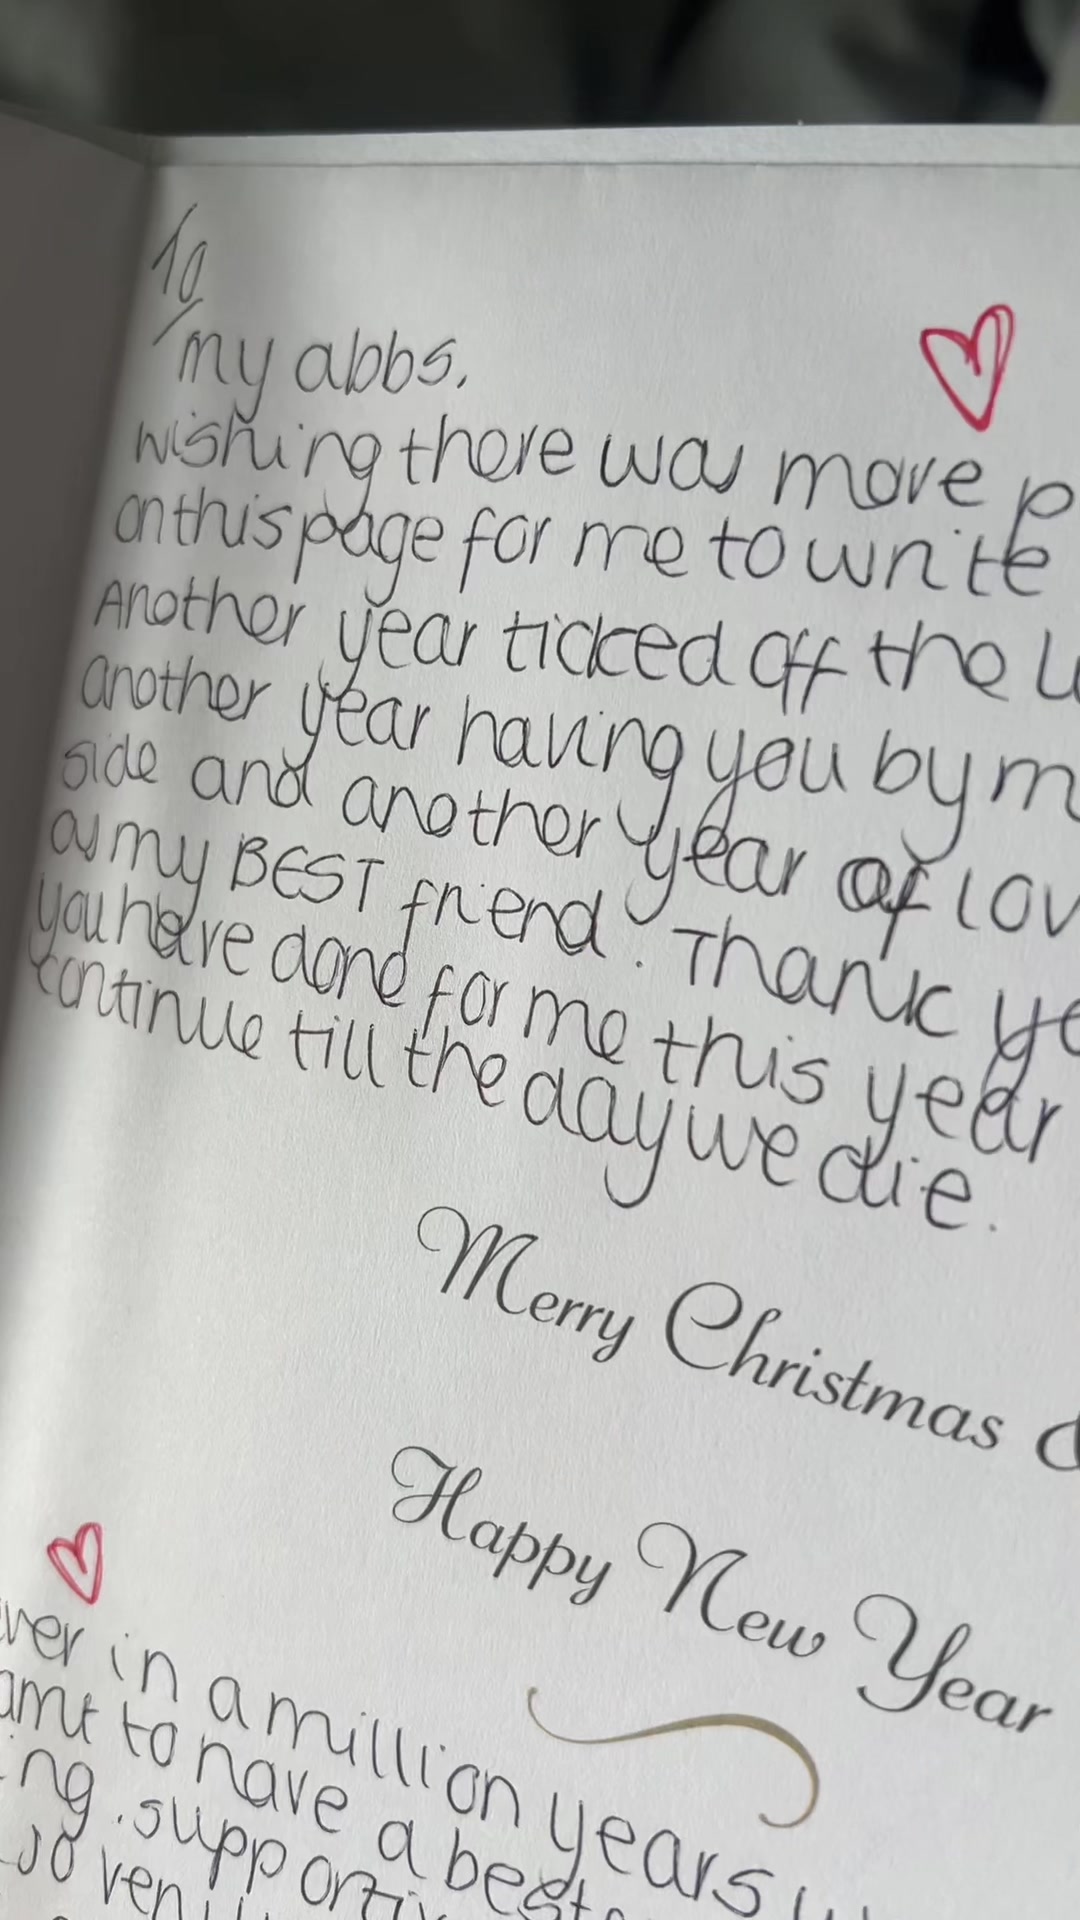 To
my abbs.
wishing there was more p
on this page for me to write
Another year ticked off the
another year having you by m
side and another year of lov
as my BEST friend. Thank yo
you have done for me this year
continue till the day we die.
Merry Christmas &
Happy New Year
ver in a million years
to have a best
ing. supporti
so very